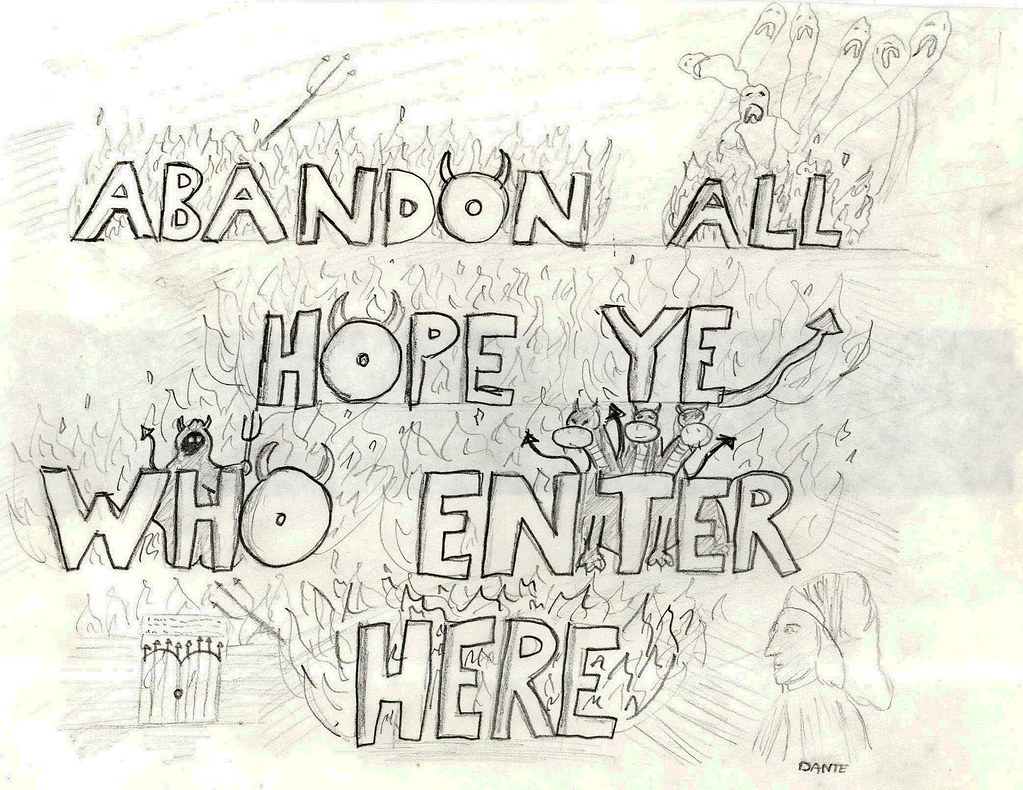 ABANDON ALL
HOPE YE
WHO ENTER
HERE
DANTE